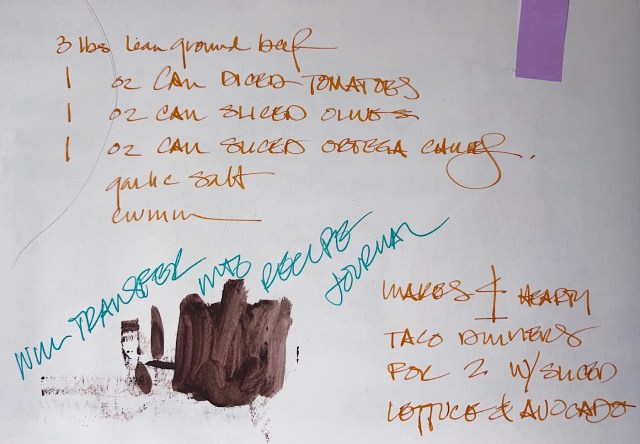 3 lbs lean ground beef
1 oz CAN DICED TOMATOES
1 oz CAN SLICED OLIVES
1 oz CAN SLICED ORTEGA CHILIES.
garlic salt
cumin
WILL TRANSFER INTO RECIPE JOURNAL
MAKES 4 HEARTY
TACO DINNERS
FOR 2 W/ SLICED
LETTUCE & AVOCADO